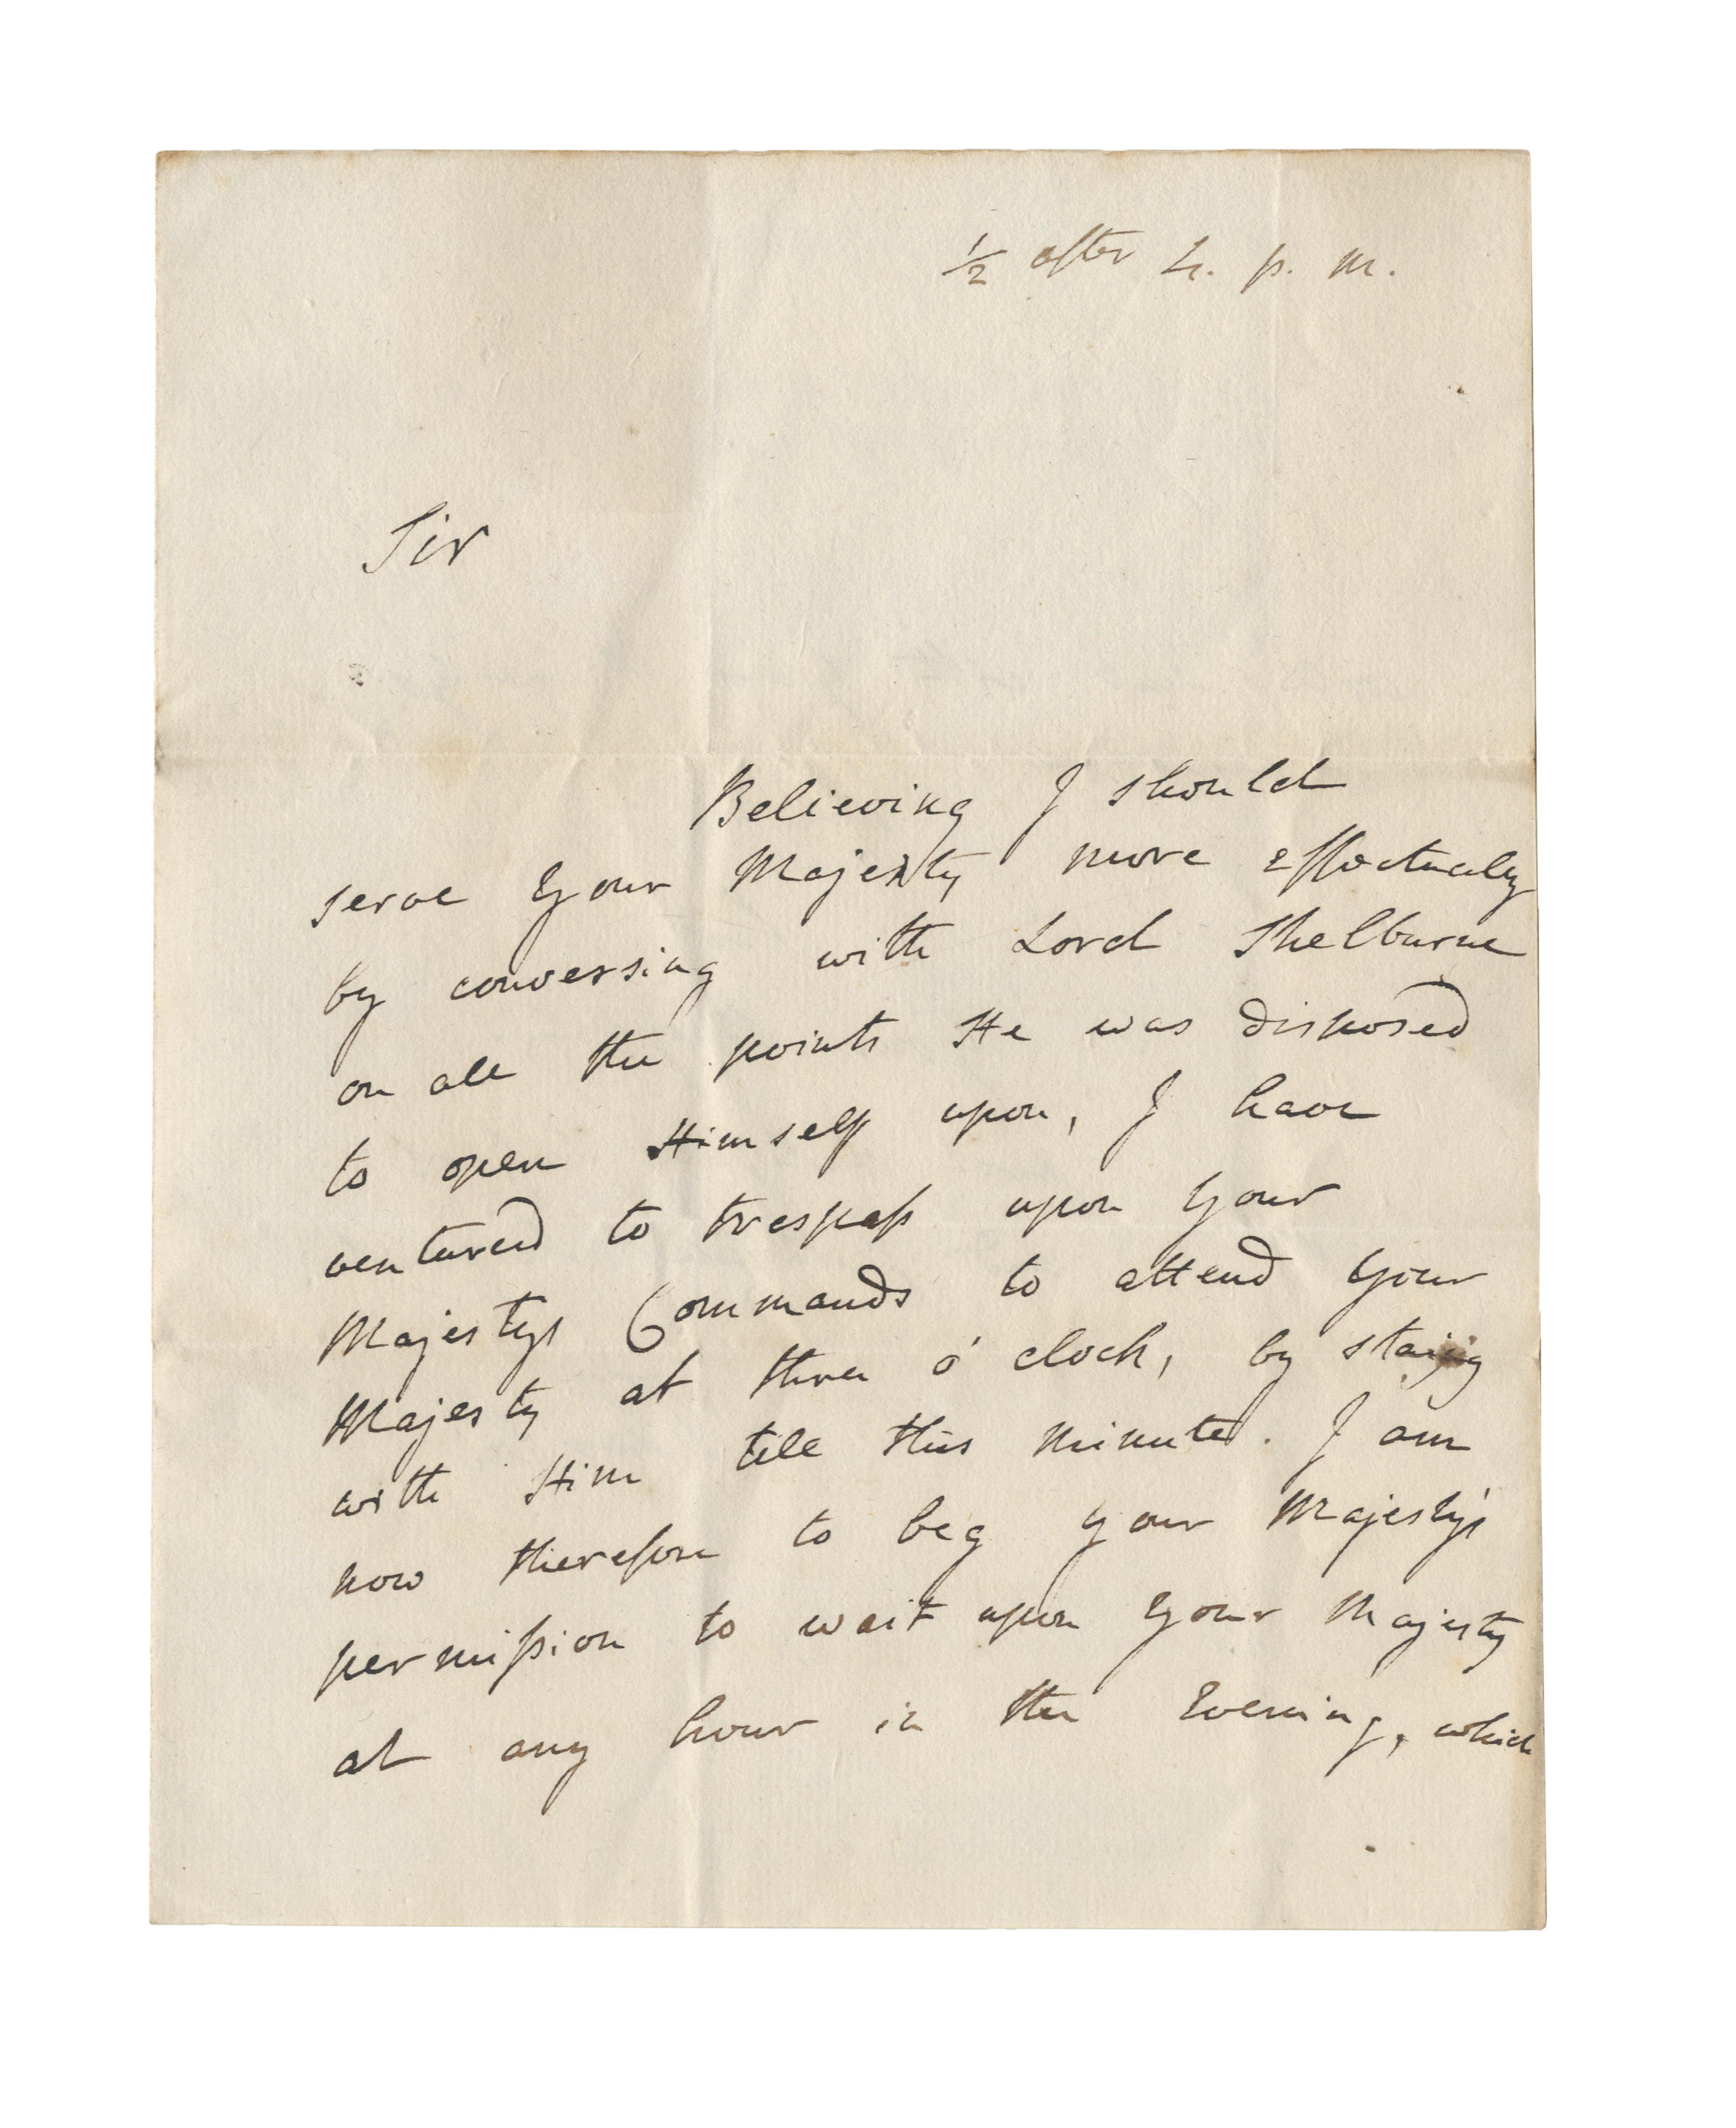 ½ after 4. p. m.
Sir
Believing I should
serve Your Majesty more effectually
by conversing with Lord Shelburne
on all the points He was disposed
to open Himself upon, I have
ventured to trespass upon Your
Majestys Commands to attend Your
Majesty at three o'clock, by staying
with Him till this minute. I am
now therefore to beg Your Majesty's
permission to wait upon Your Majesty
at any hour in the Evening, which